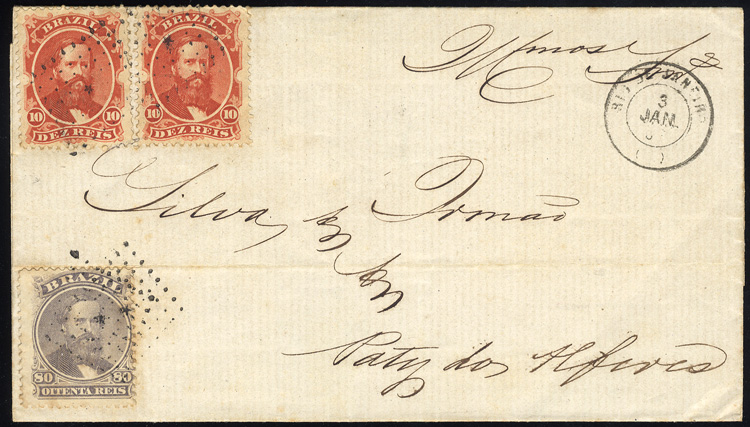 BRAZIL BRAZIL
10 10 10 10
DEZ REIS DEZ REIS
Illmos Srs
RIO DE JANEIRO
3
JAN.
Silva & Irmão
Paty do Alferes
BRAZIL
80 80
OITENTA REIS